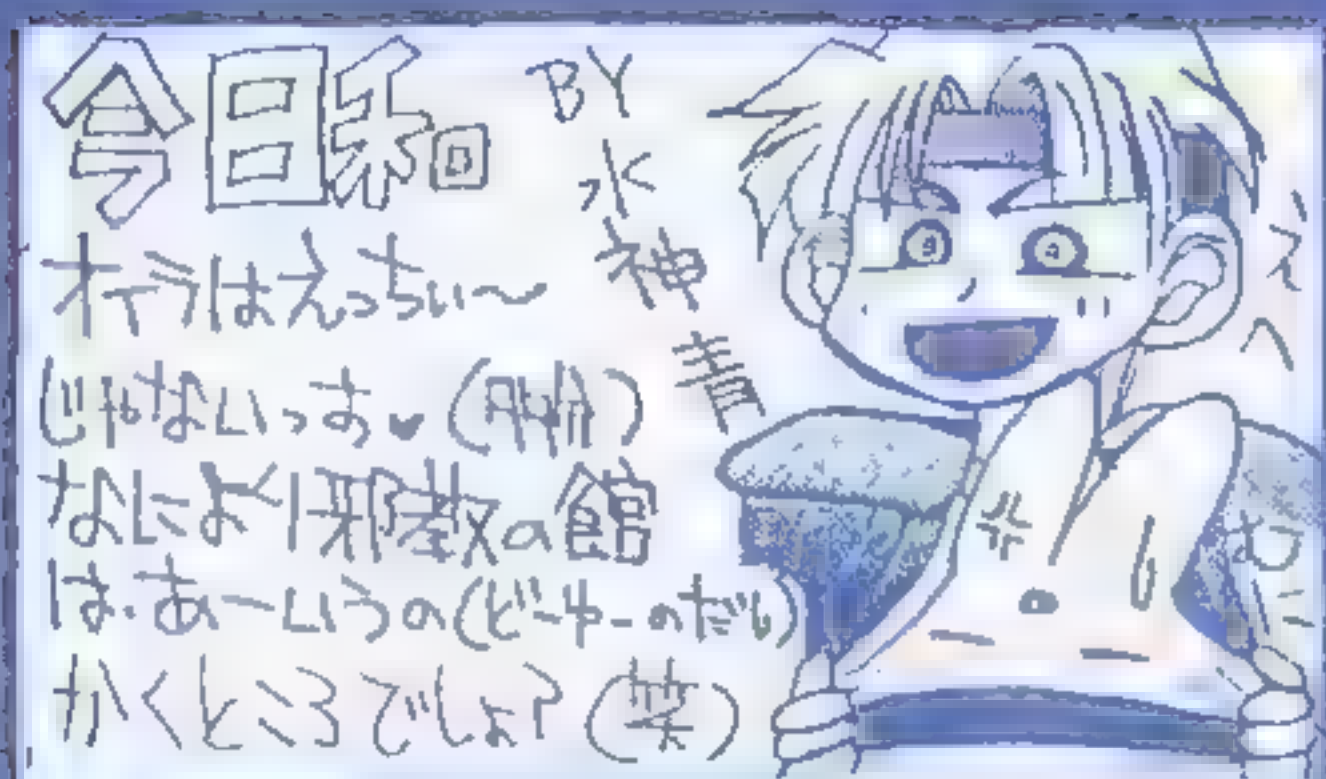 今日
BY
水神青
オイラはえっちぃ〜
じゃないっす♥
なにより邪教の館
は・あーいうの(どーゆーのだい)
かくところでしょ?(笑)
む